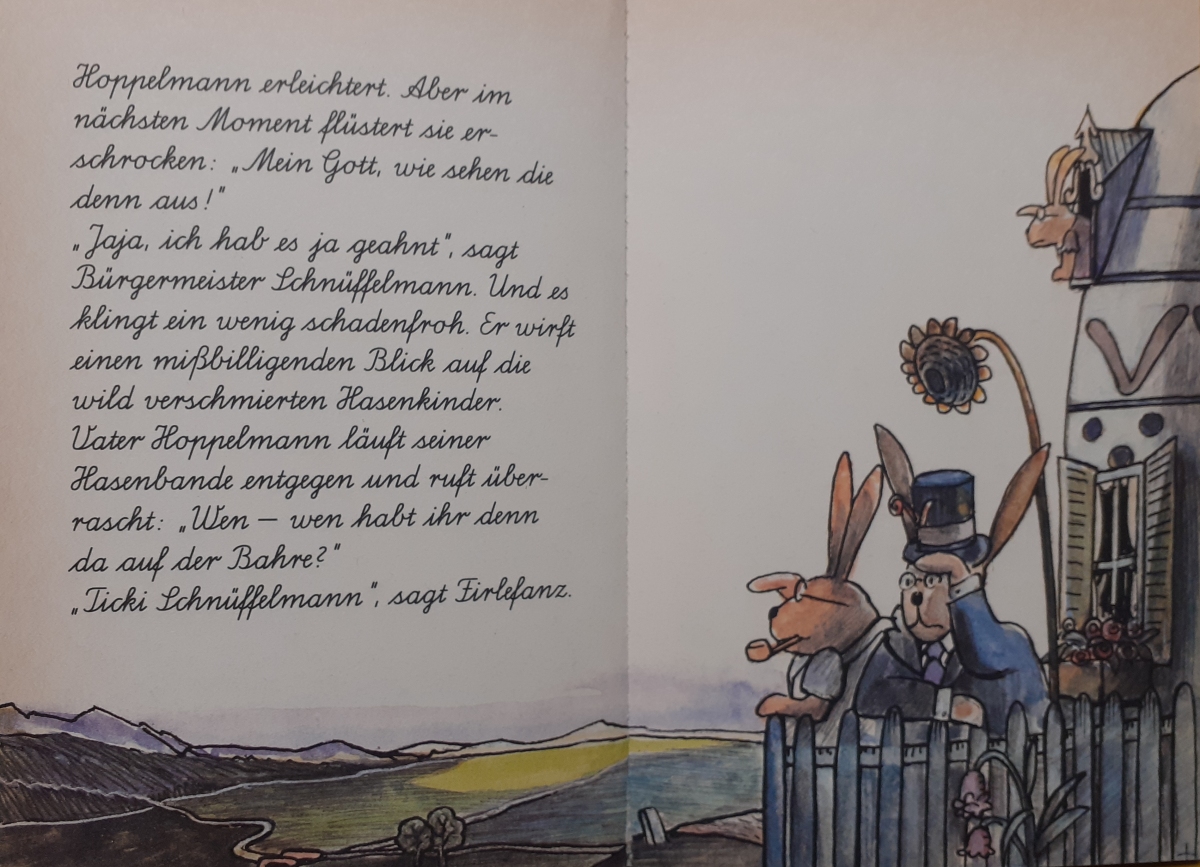 Hoppelmann erleichtert. Aber im
nächsten Moment flüstert sie er-
schrocken: „Mein Gott, wie sehen die
denn aus!"
„Jaja, ich hab es ja geahnt", sagt
Bürgermeister Schnüffelmann. Und es
klingt ein wenig schadenfroh. Er wirft
einen mißbilligenden Blick auf die
wild verschmierten Hasenkinder.
Vater Hoppelmann läuft seiner
Hasenbande entgegen und ruft über-
rascht: „Wen – wen habt ihr denn
da auf der Bahre?"
„Ticki Schnüffelmann", sagt Firlefanz.